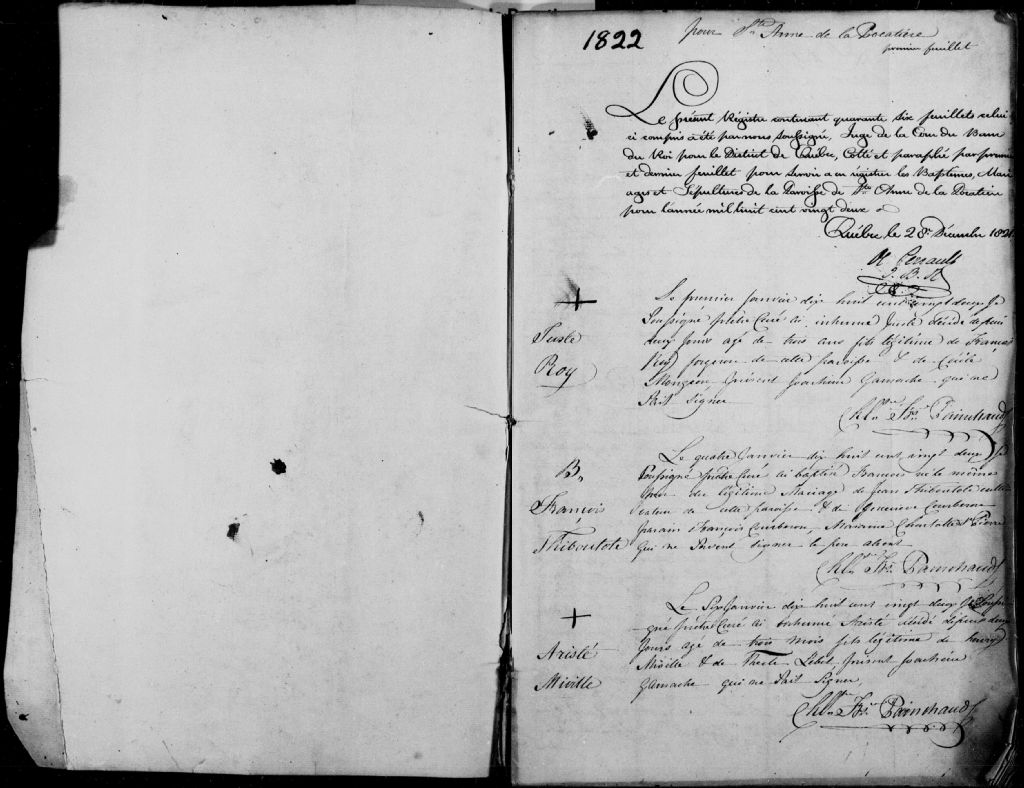 1822
pour Ste Anne de la Pocatière
premier feuillet
Le présent Régistre contenant quarante six feuillets celui
ci compris a été par nous, soussigné, Juge de la Cour du Banc
du Roi pour le District de Québec, Cotté et paraphé par premier
et dernier feuillet pour servir a en régistrer les Baptêmes, Mari
ages et Sépultures de la Paroisse de Ste Anne de la Pocatière
pour l'année mil huit cent vingt deux
Québec le 28e Décembre 1821
Perrault
J. B. R
+
Juste
Roy
Le premier Janvier dix huit cent vingt deux Je
Soussigné prêtre Curé ai inhumé Juste décédé depuis
deux Jours agé de trois ans fils légitime de François
Roy forgeron de cette paroisse & de Cécile
Mongeon présent Joachim Gamache qui ne
Sait signer
Chls Frs Painchaud ptre
B.
François
Thiboutote
Le quatre Janvier dix huit cent vingt deux Je
Soussigné prêtre Curé ai baptisé François né le même
Jour du légitime Mariage de Jean Thiboutote culti
vateur de cette paroisse & de Genevieve Courberon
parain François Courberon, Maraine Charlotte St Pierre
qui ne Savent signer le pere absent
Chls Frs Painchaud ptre
+
Aristé
Miville
Le Six Janvier dix huit cent vingt deux Je Soussi-
gné prêtre Curé ai inhumé Aristé décédé depuis deux
Jours agé de trois mois fils légitime de
Miville & de Thecle Lebel présent Joachim
Gamache qui ne Sait Signer,
Chls Frs Painchaud ptre